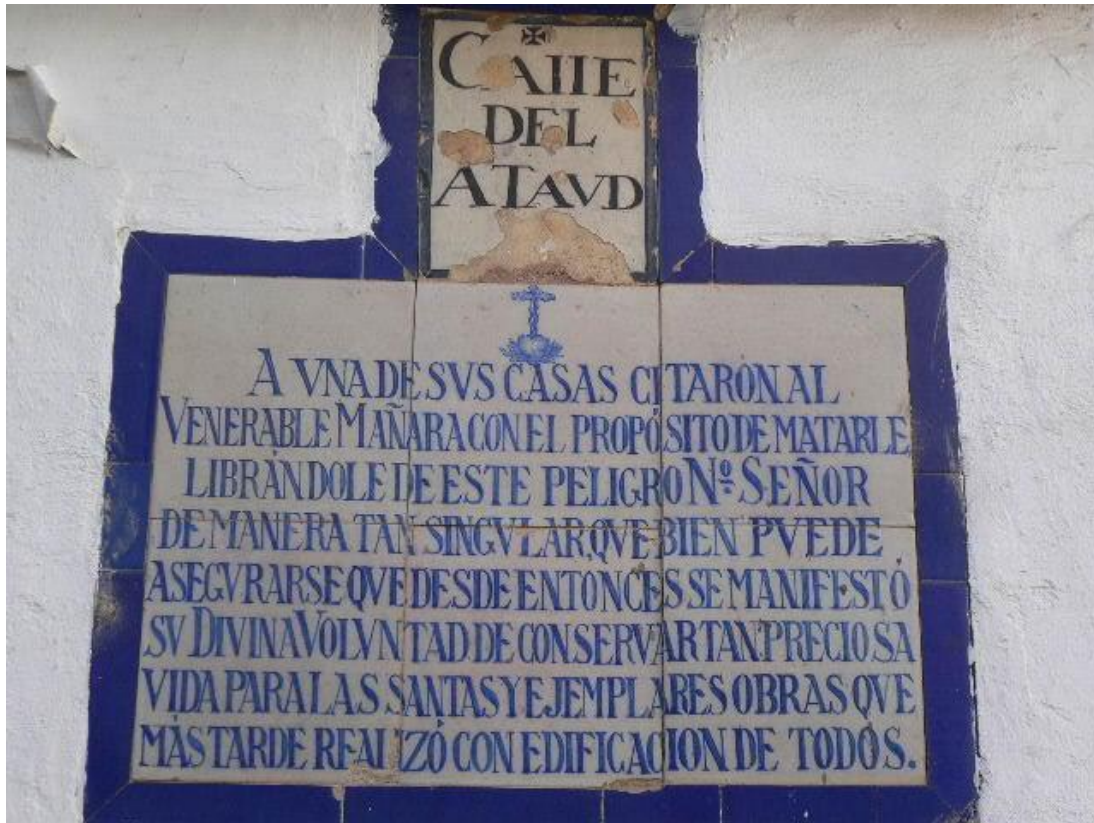 CAllE
DEL
ATAVD
A VNA DE SVS CASAS CITARON AL
VENERABLE MAÑARA CON EL PROPÓSITO DE MATARLE
LIBRÁNDOLE DE ESTE PELIGRO Nº. SEÑOR
DE MANERA TAN SINGVLAR, QVE BIEN PVEDE
ASEGVRARSE QVE DESDE ENTONCES SE MANIFESTÓ
SV DIVINA VOLVNTAD DE CONSERVAR TAN PRECIOSA
VIDA PARA LAS SANTAS Y EJEMPLARES OBRAS QVE
MÁS TARDE REALIZÓ CON EDIFICACION DE TODOS.